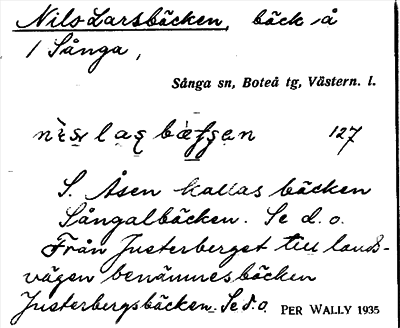 Nils-Larsbäcken, bäck å
1 Sånga,
Sånga sn, Boteå tg, Västern. l.
127
S. Åsen kallas bäcken
Sångalbäcken. Se d.o.
Från Justerberget till lands-
vägen benämnes bäcken
Justerbergsbäcken. Se d.o. PER WALLY 1935